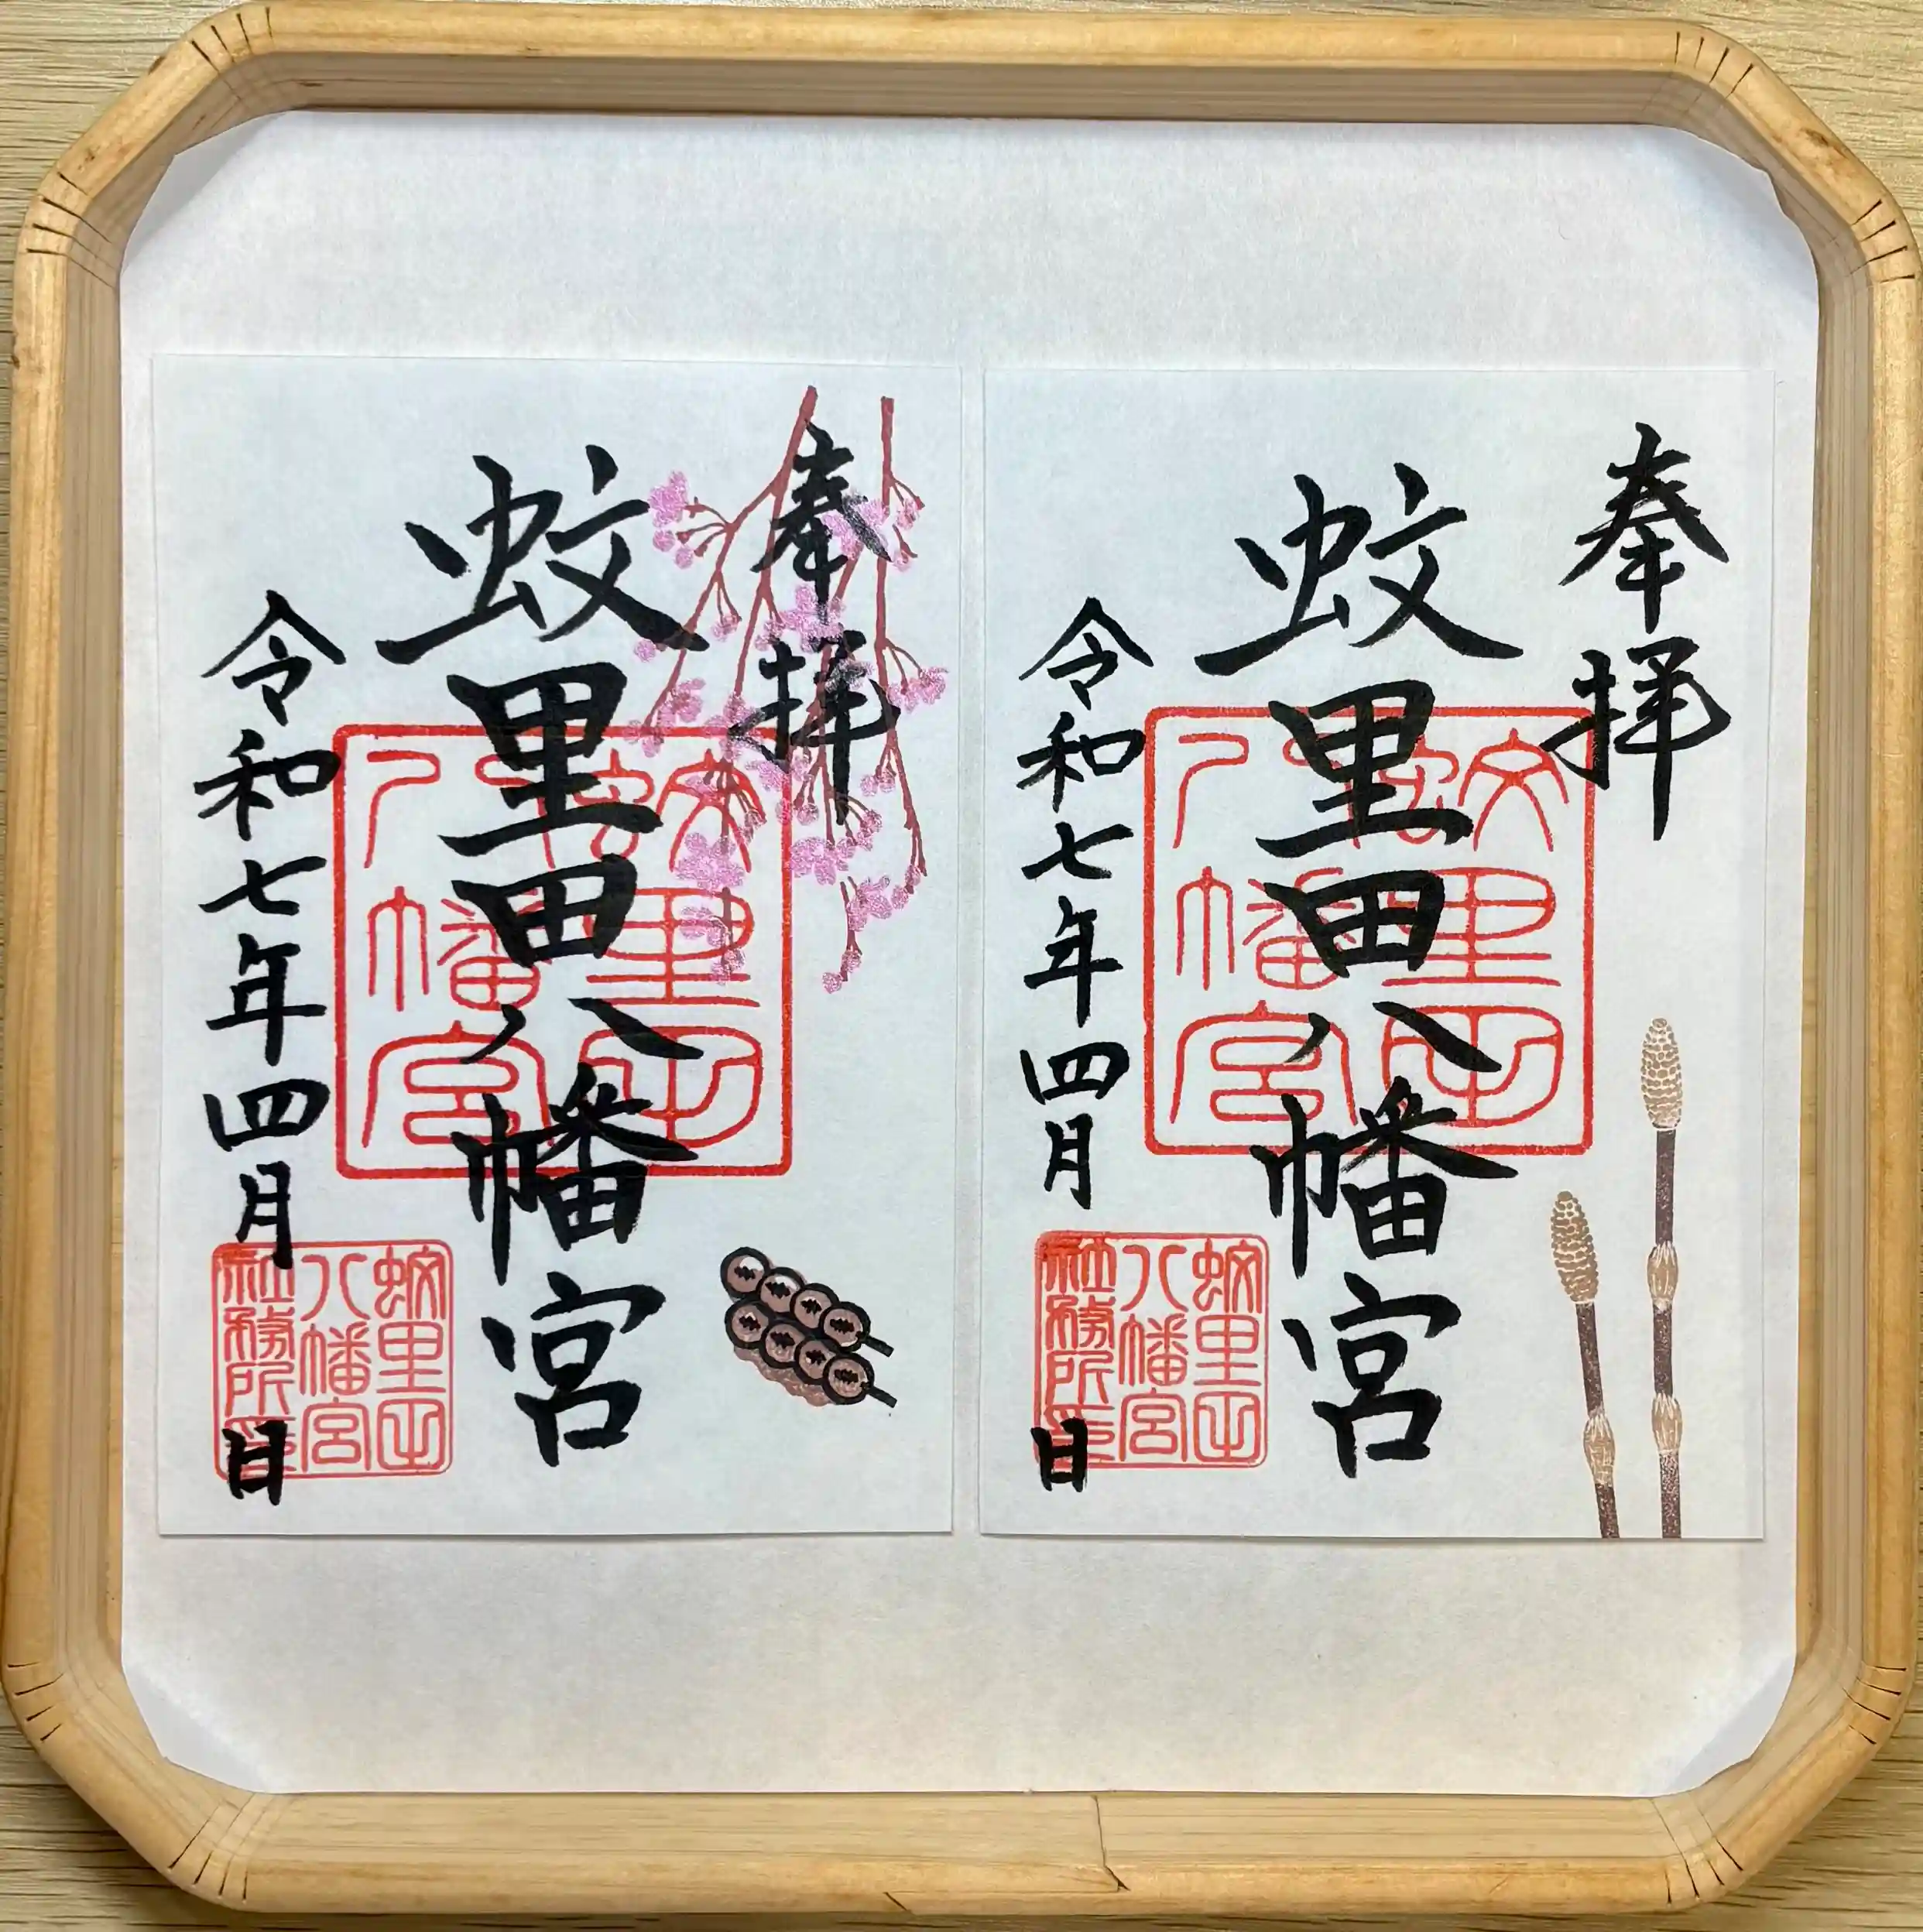 奉拝
蚊里田八幡宮
令和七年四月 日
蚊里田
八幡宮
蚊里田
八幡宮
社務所印
奉拝
蚊里田八幡宮
令和七年四月 日
蚊里田
八幡宮
蚊里田
八幡宮
社務所印